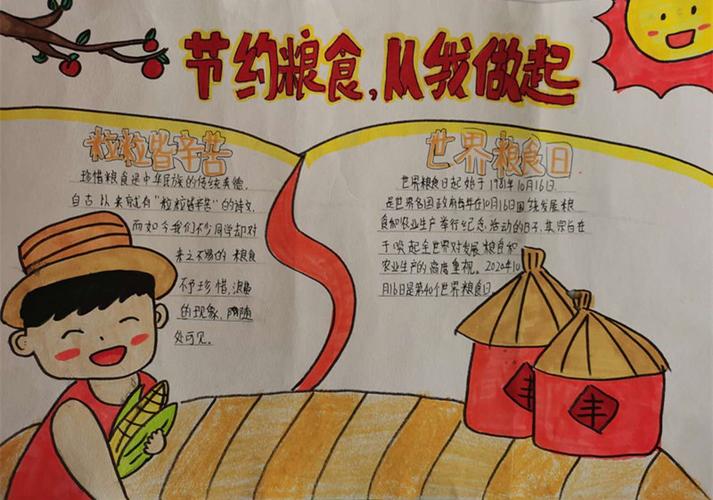 节约粮食,从我做起
粒粒皆辛苦
珍惜粮食是中华民族的传统美德,
自古以来就有"粒粒皆辛苦"的诗文,
而如今我们不少同学却对
来之不易的粮食
不予珍惜,浪费
的现象,随
处可见。
世界粮食日
世界粮食日起始于1981年10月16日
是世界各国政府每年在10月16日围绕发展粮
食和农业生产举行纪念活动的日子,其宗旨在
于唤起全世界对发展粮食和
农业生产的高度重视。2020年10
月16日是第40个世界粮食日
丰
丰